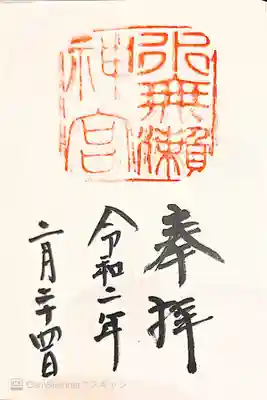 水無瀨
神宮
奉拝
令和二年
二月二十四日
CamScannerでスキャン